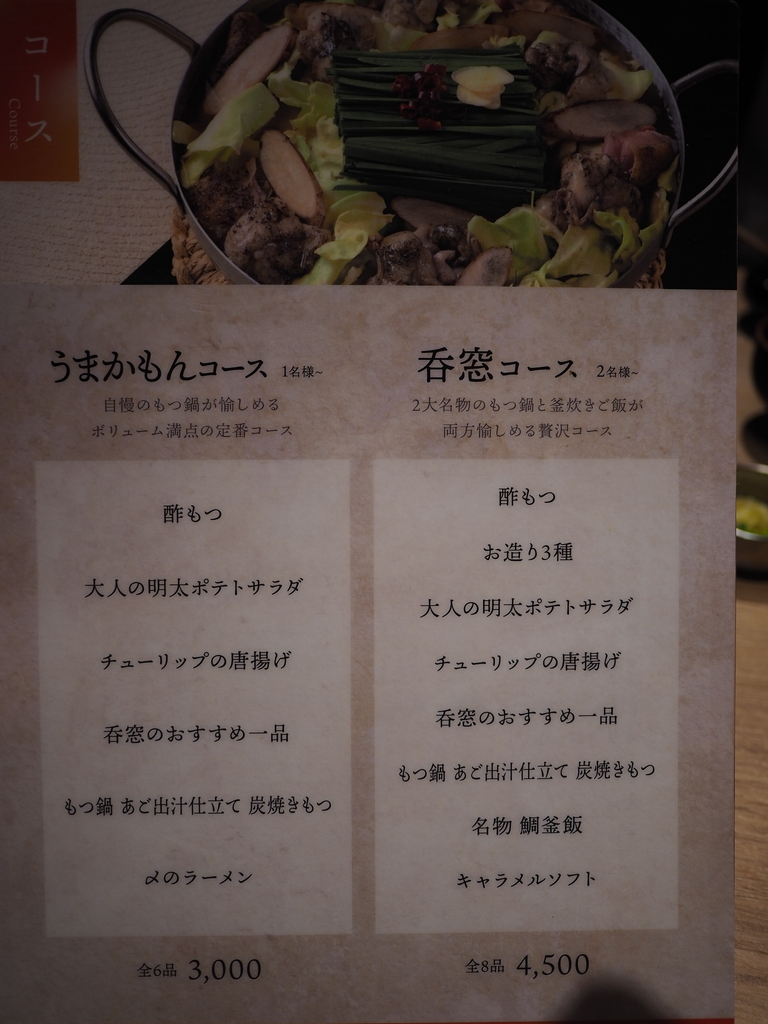 コース
Course
うまかもんコース 1名様~
自慢のもつ鍋が愉しめる
ボリューム満点の定番コース
酢もつ
大人の明太ポテトサラダ
チューリップの唐揚げ
呑窓のおすすめ一品
もつ鍋 あご出汁仕立て 炭焼きもつ
〆のラーメン
全6品 3,000
呑窓コース 2名様~
2大名物のもつ鍋と釜炊きご飯が
両方愉しめる贅沢コース
酢もつ
お造り3種
大人の明太ポテトサラダ
チューリップの唐揚げ
呑窓のおすすめ一品
もつ鍋 あご出汁仕立て 炭焼きもつ
名物 鯛釜飯
キャラメルソフト
全8品 4,500